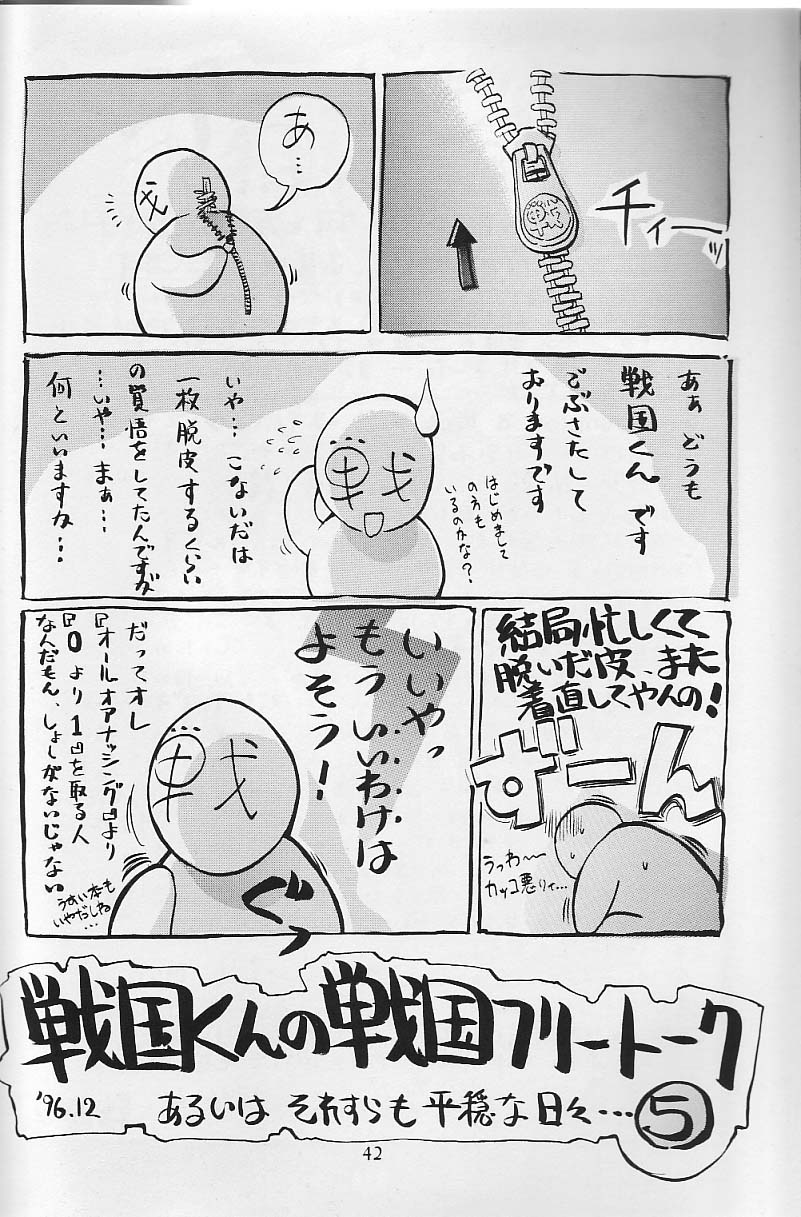 チィーッ
あ…
あぁ どうも
戦国くんです
ごぶさたして
おりますです
はじめまして
の方も
いるのかな？
戦
いや… こないだは
一枚脱皮するくらい
の覚悟をしてたんですが
…いや… まぁ…
何といいますか…
結局忙しくて
脱いだ皮、また
着直してやんの！
ずーん
うっわ〜〜
カッコ悪りィ…
いいやっ
もう いいわけは
よそう！
だってオレ
『オールオアナッシング』より
『0より1』を取る人
なんだもん、しょーがないじゃない
うすい本も
いやだしね
…
戦
ぐっ
戦国くんの戦国フリートーク
'96.12 あるいは それすらも 平穏な日々… ⑤
42